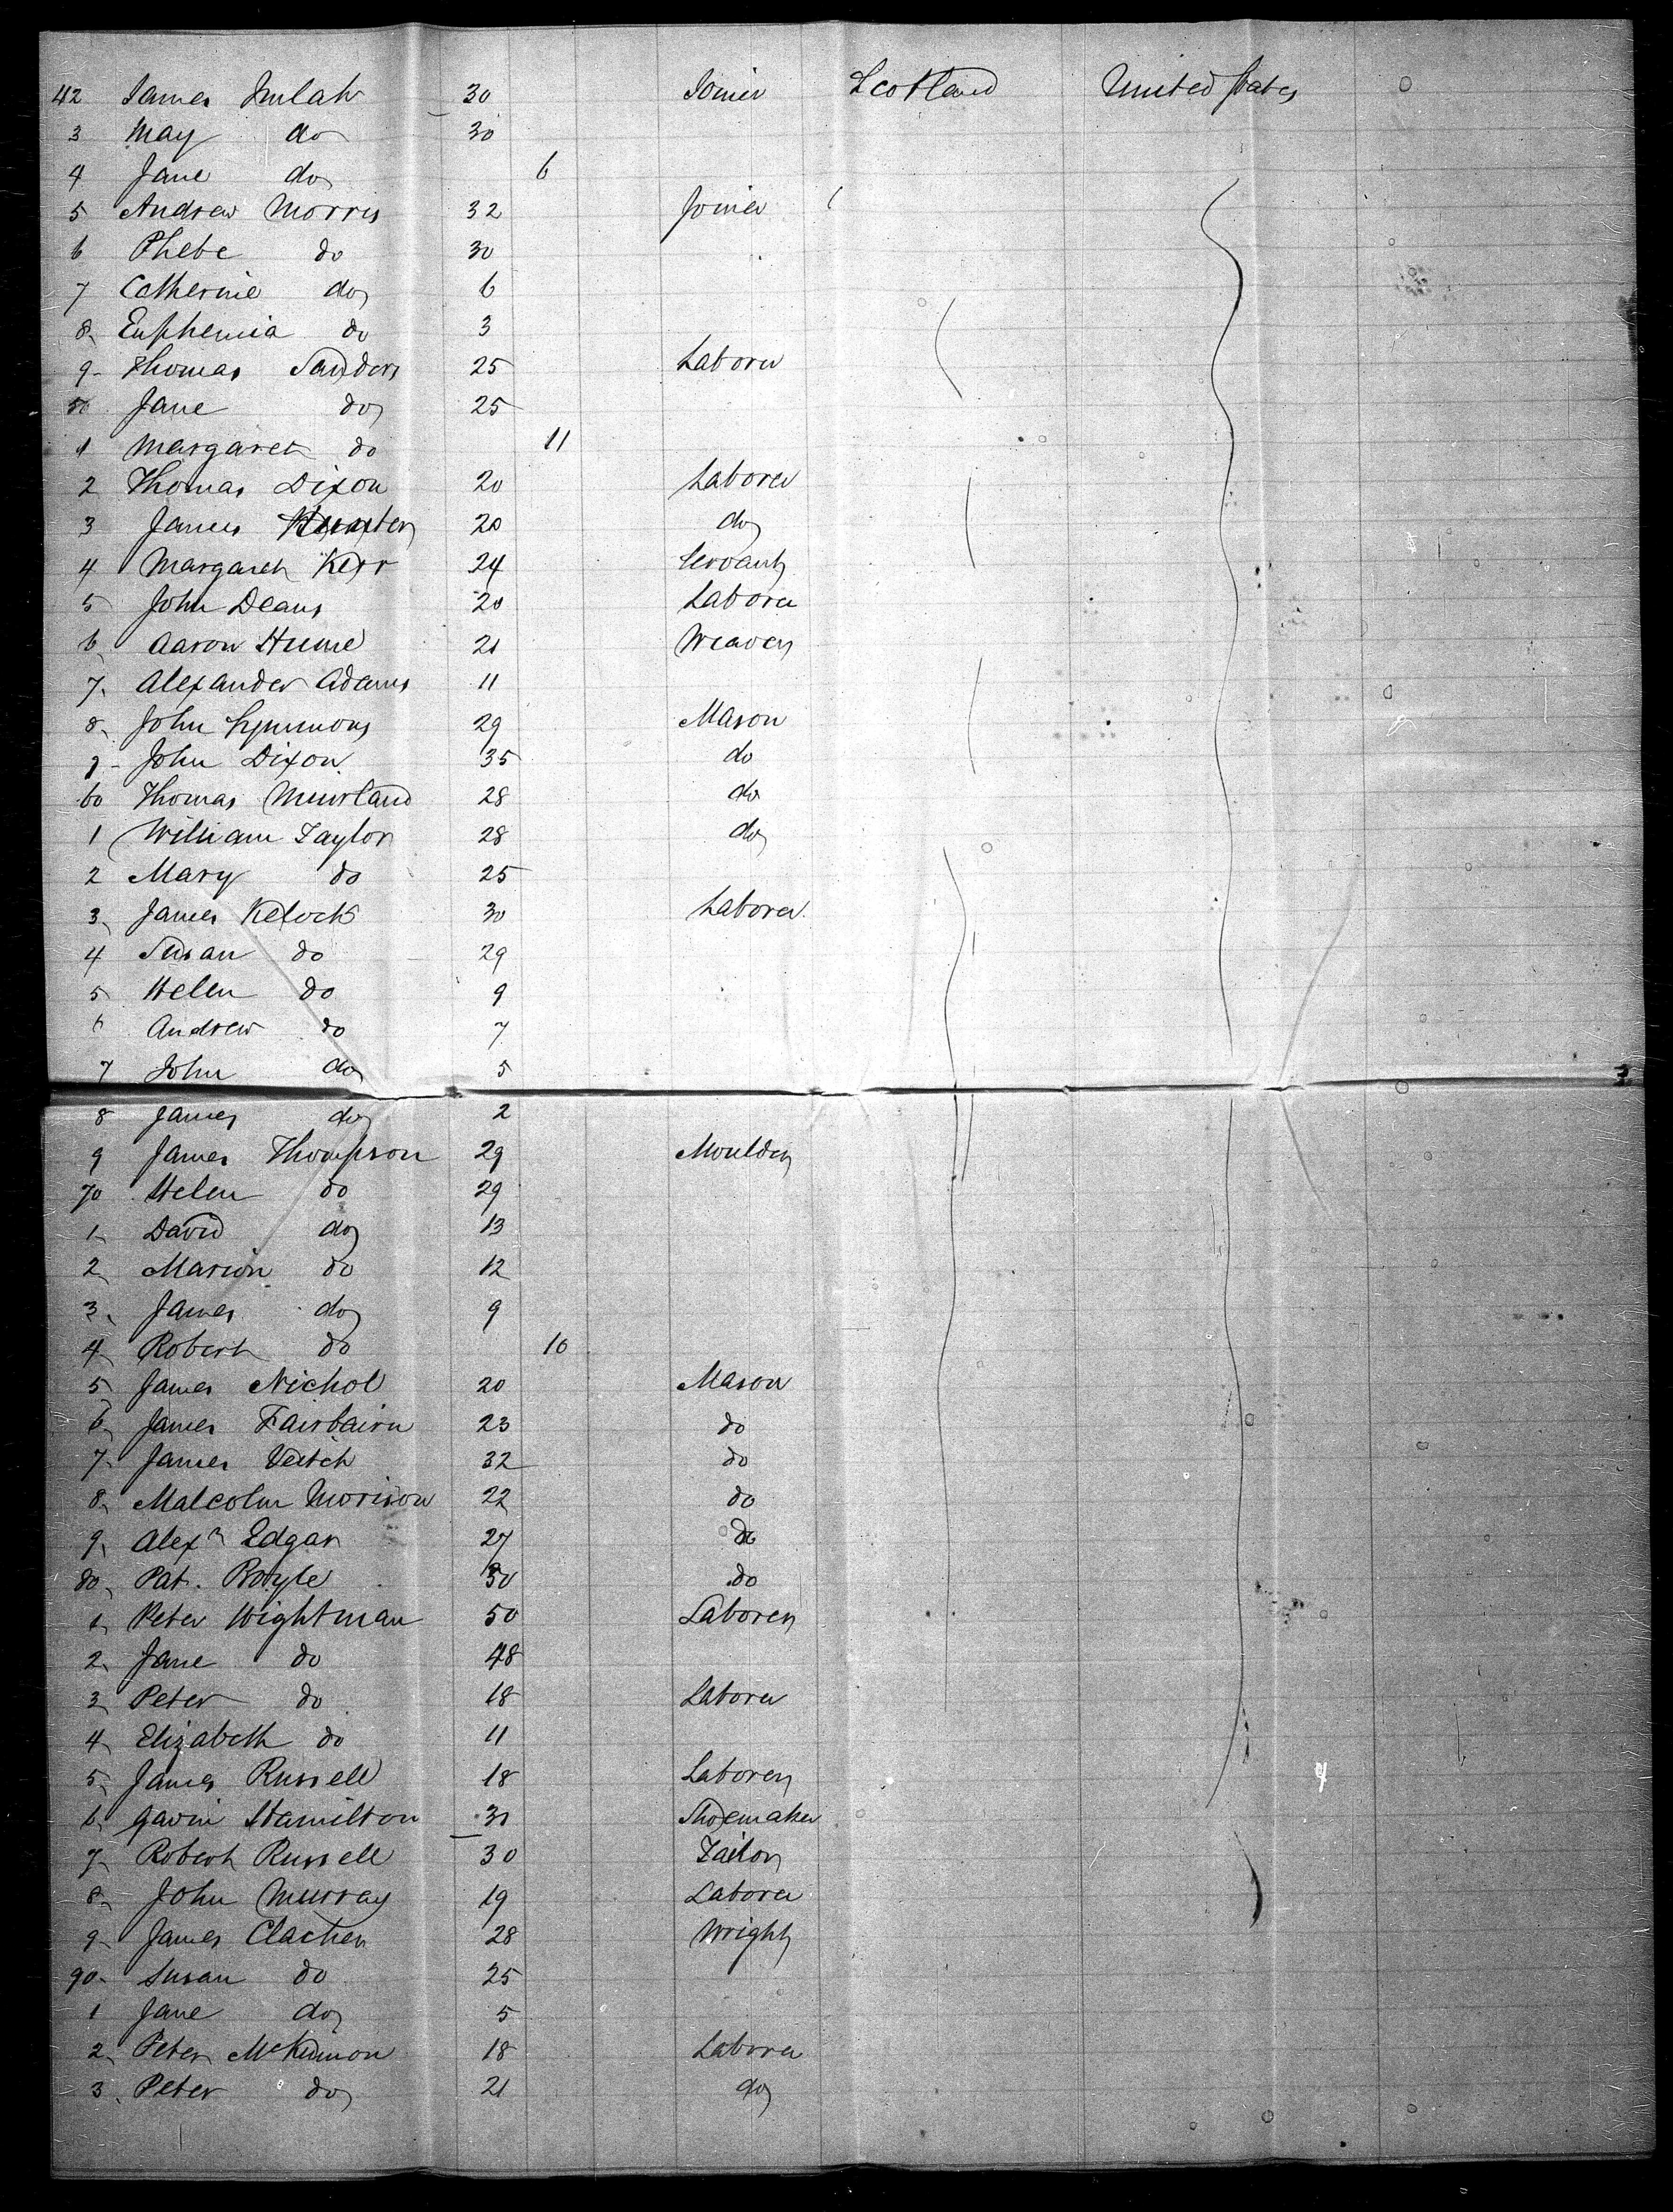 42 James Imlah 30 Joiner Scotland United States
3 May do 30
4 Jane do 6
5 Andrew Morris 32 Joiner
6 Phebe do 30
7 Catherine do 6
8 Euphemia do 3
9 Thomas Sanders 25 Laborer
50 Jane do 25
1 Margaret do 11
2 Thomas Dixon 20 Laborer
3 James Hunter 20 do
4 Margaret Kerr 24 Servant
5 John Deans 20 Laborer
6 Aaron Hume 21 Weaver
7 Alexander Adams 11
8 John Symmons 29 Mason
9 John Dixon 35 do
60 Thomas Muirland 28 do
1 William Taylor 28 do
2 Mary do 25
3 James Kelock 30 Laborer
4 Susan do 29
5 Helen do 9
6 Andrew do 7
7 John do 5
8 James do 2
9 James Thompson 29 Moulder
70 Helen do 29
1 David do 13
2 Marion do 12
3 James do 9
4 Robert do 10
5 James Nichol 20 Mason
6 James Fairbairn 23 do
7 James Veitch 32 do
8 Malcolm Morison 22 do
9 Alexr Edgar 27 do
80 Pat. Boyle 30 do
1 Peter Wightman 50 Laborer
2 Jane do 48
3 Peter do 18 Laborer
4 Elizabeth do 11
5 James Russell 18 Laborer
6 Gavin Hamilton 31 Shoemaker
7 Robert Russell 30 Tailor
8 John Murray 19 Laborer
9 James Clacher 28 Wright
90 Susan do 25
1 Jane do 5
2 Peter McKinnon 18 Laborer
3 Peter do 21 do